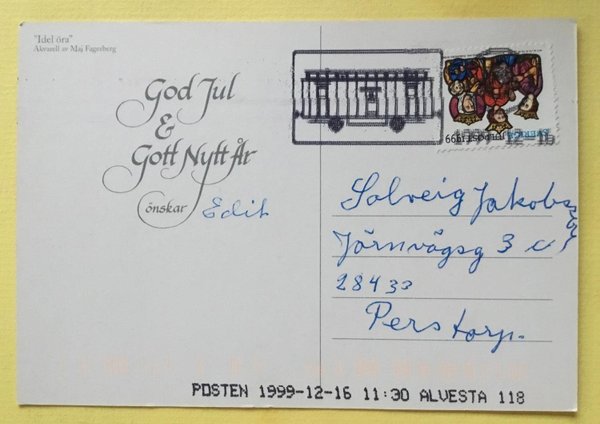 "Idel öra"
Akvarell av Maj Fagerberg
God Jul
&
Gott Nytt År
önskar Edit
1999-12-16
Solveig Jakobsson
Järnvägsg 3 c
28433
Perstorp.
POSTEN 1999-12-16 11:30 ALVESTA 118